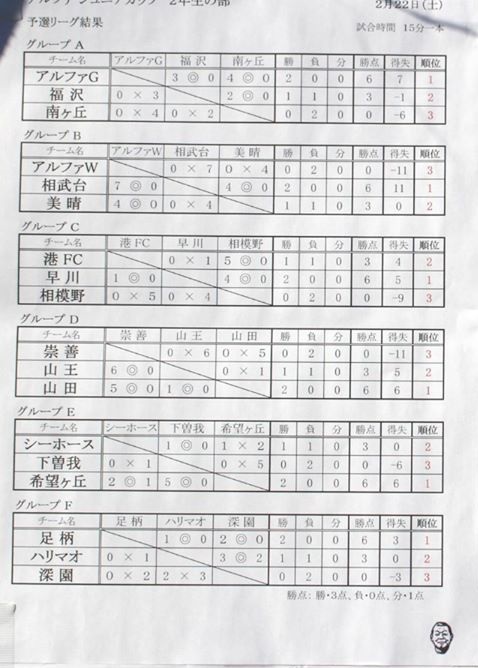 2年生の部
2月22日(土)
予選リーグ結果
試合時間 15分一本
グループ A
チーム名 アルファG 福沢 南ヶ丘 勝 負 分 勝点 得失 順位
アルファG 3 ◎ 0 4 ◎ 0 2 0 0 6 7 1
福沢 0 × 3 2 ◎ 0 1 1 0 3 -1 2
南ヶ丘 0 × 4 0 × 2 0 2 0 0 -6 3
グループ B
チーム名 アルファW 相武台 美晴 勝 負 分 勝点 得失 順位
アルファW 0 × 7 0 × 4 0 2 0 0 -11 3
相武台 7 ◎ 0 4 ◎ 0 2 0 0 6 11 1
美晴 4 ◎ 0 0 × 4 1 1 0 3 0 2
グループ C
チーム名 港FC 早川 相模野 勝 負 分 勝点 得失 順位
港FC 0 × 1 5 ◎ 0 1 1 0 3 4 2
早川 1 ◎ 0 4 ◎ 0 2 0 0 6 5 1
相模野 0 × 5 0 × 4 0 2 0 0 -9 3
グループ D
チーム名 崇善 山王 山田 勝 負 分 勝点 得失 順位
崇善 0 × 6 0 × 5 0 2 0 0 -11 3
山王 6 ◎ 0 0 × 1 1 1 0 3 5 2
山田 5 ◎ 0 1 ◎ 0 2 0 0 6 6 1
グループ E
チーム名 シーホース 下曽我 希望ヶ丘 勝 負 分 勝点 得失 順位
シーホース 1 ◎ 0 1 × 2 1 1 0 3 0 2
下曽我 0 × 1 0 × 5 0 2 0 0 -6 3
希望ヶ丘 2 ◎ 1 5 ◎ 0 2 0 0 6 6 1
グループ F
チーム名 足柄 ハリマオ 深園 勝 負 分 勝点 得失 順位
足柄 1 ◎ 0 2 ◎ 0 2 0 0 6 3 1
ハリマオ 0 × 1 3 ◎ 2 1 1 0 3 0 2
深園 0 × 2 2 × 3 0 2 0 0 -3 3
勝点：勝・3点、負・0点、分・1点